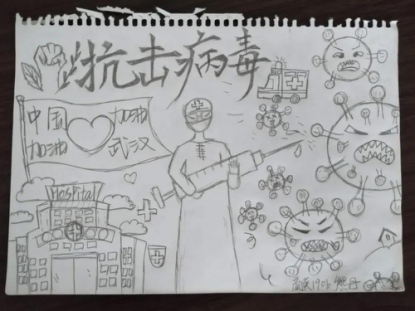 抗击病毒
中国 加油
加油 武汉
Hospital